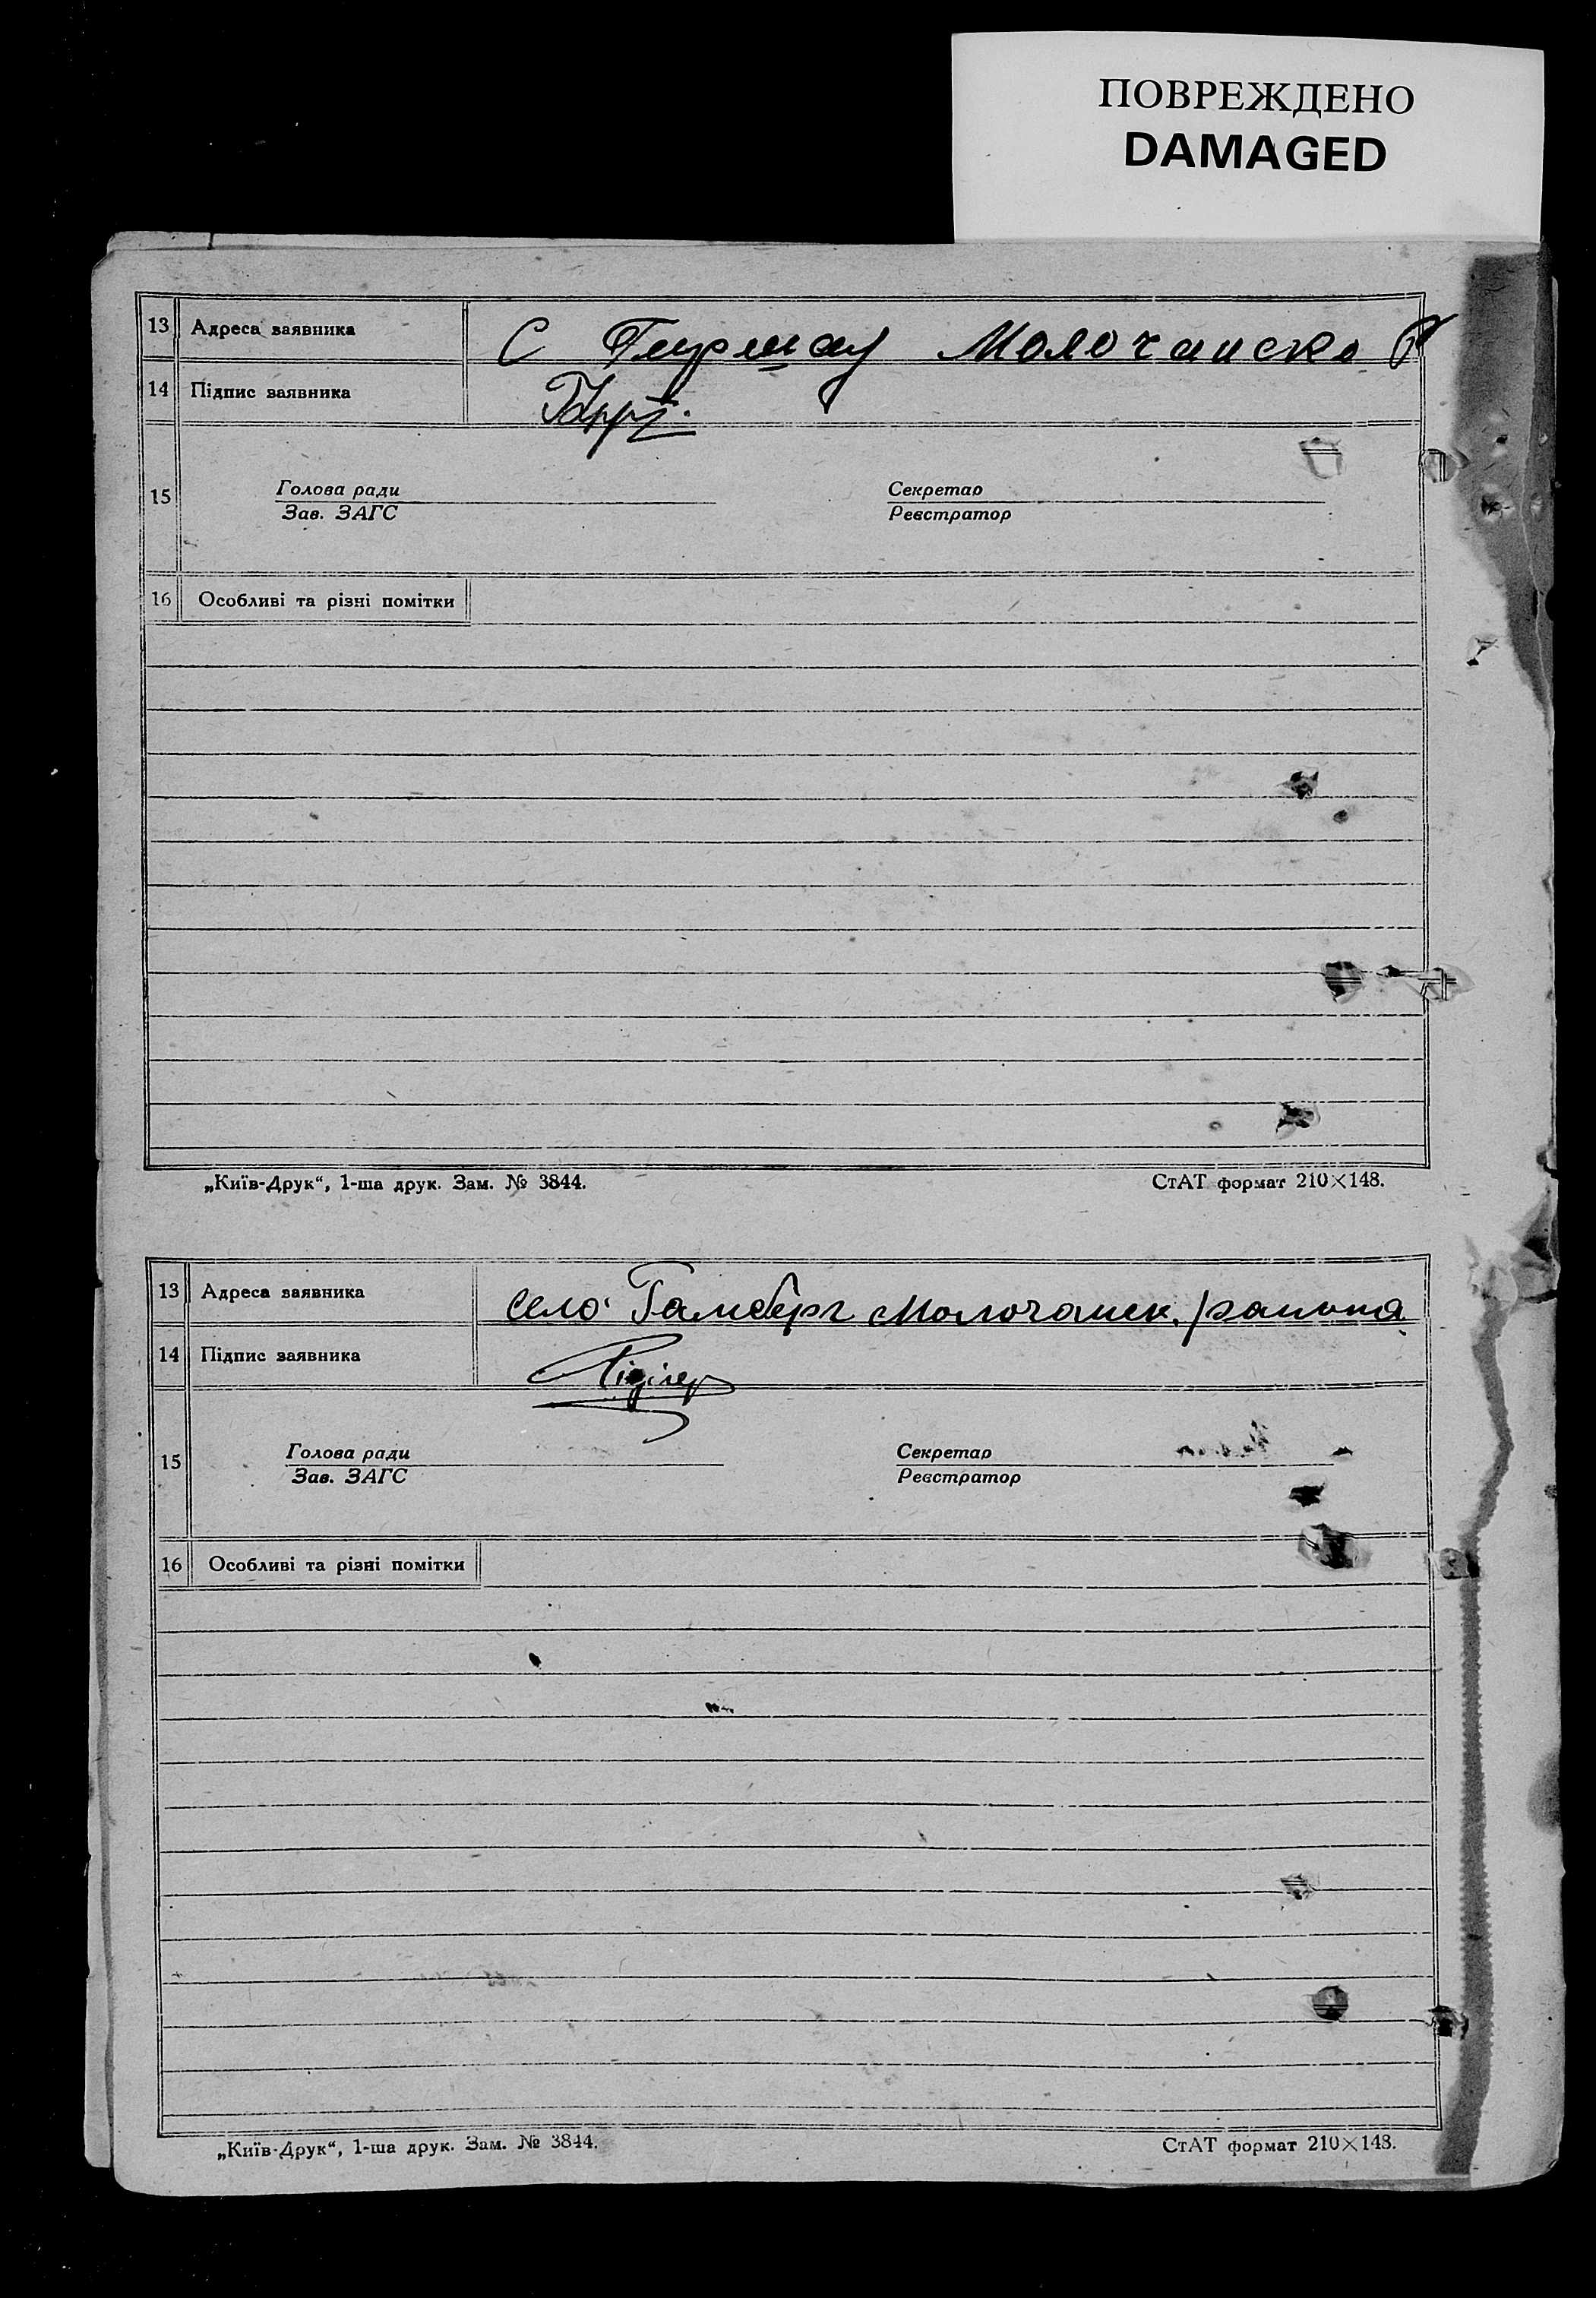 ПОВРЕЖДЕНО
DAMAGED
13 Адреса заявника С Гиршау Молочанско Р
14 Підпис заявника
15 Голова ради Секретар
Зав. ЗАГС Реєстратор
16 Особливі та різні помітки
„Київ-Друк“, 1-ша друк. Зам. № 3844. СтАТ формат 210×148.
13 Адреса заявника село Гамберг Молочанск. района
14 Підпис заявника
15 Голова ради Секретар
Зав. ЗАГС Реєстратор
16 Особливі та різні помітки
„Київ-Друк“, 1-ша друк. Зам. № 3844. СтАТ формат 210×148.